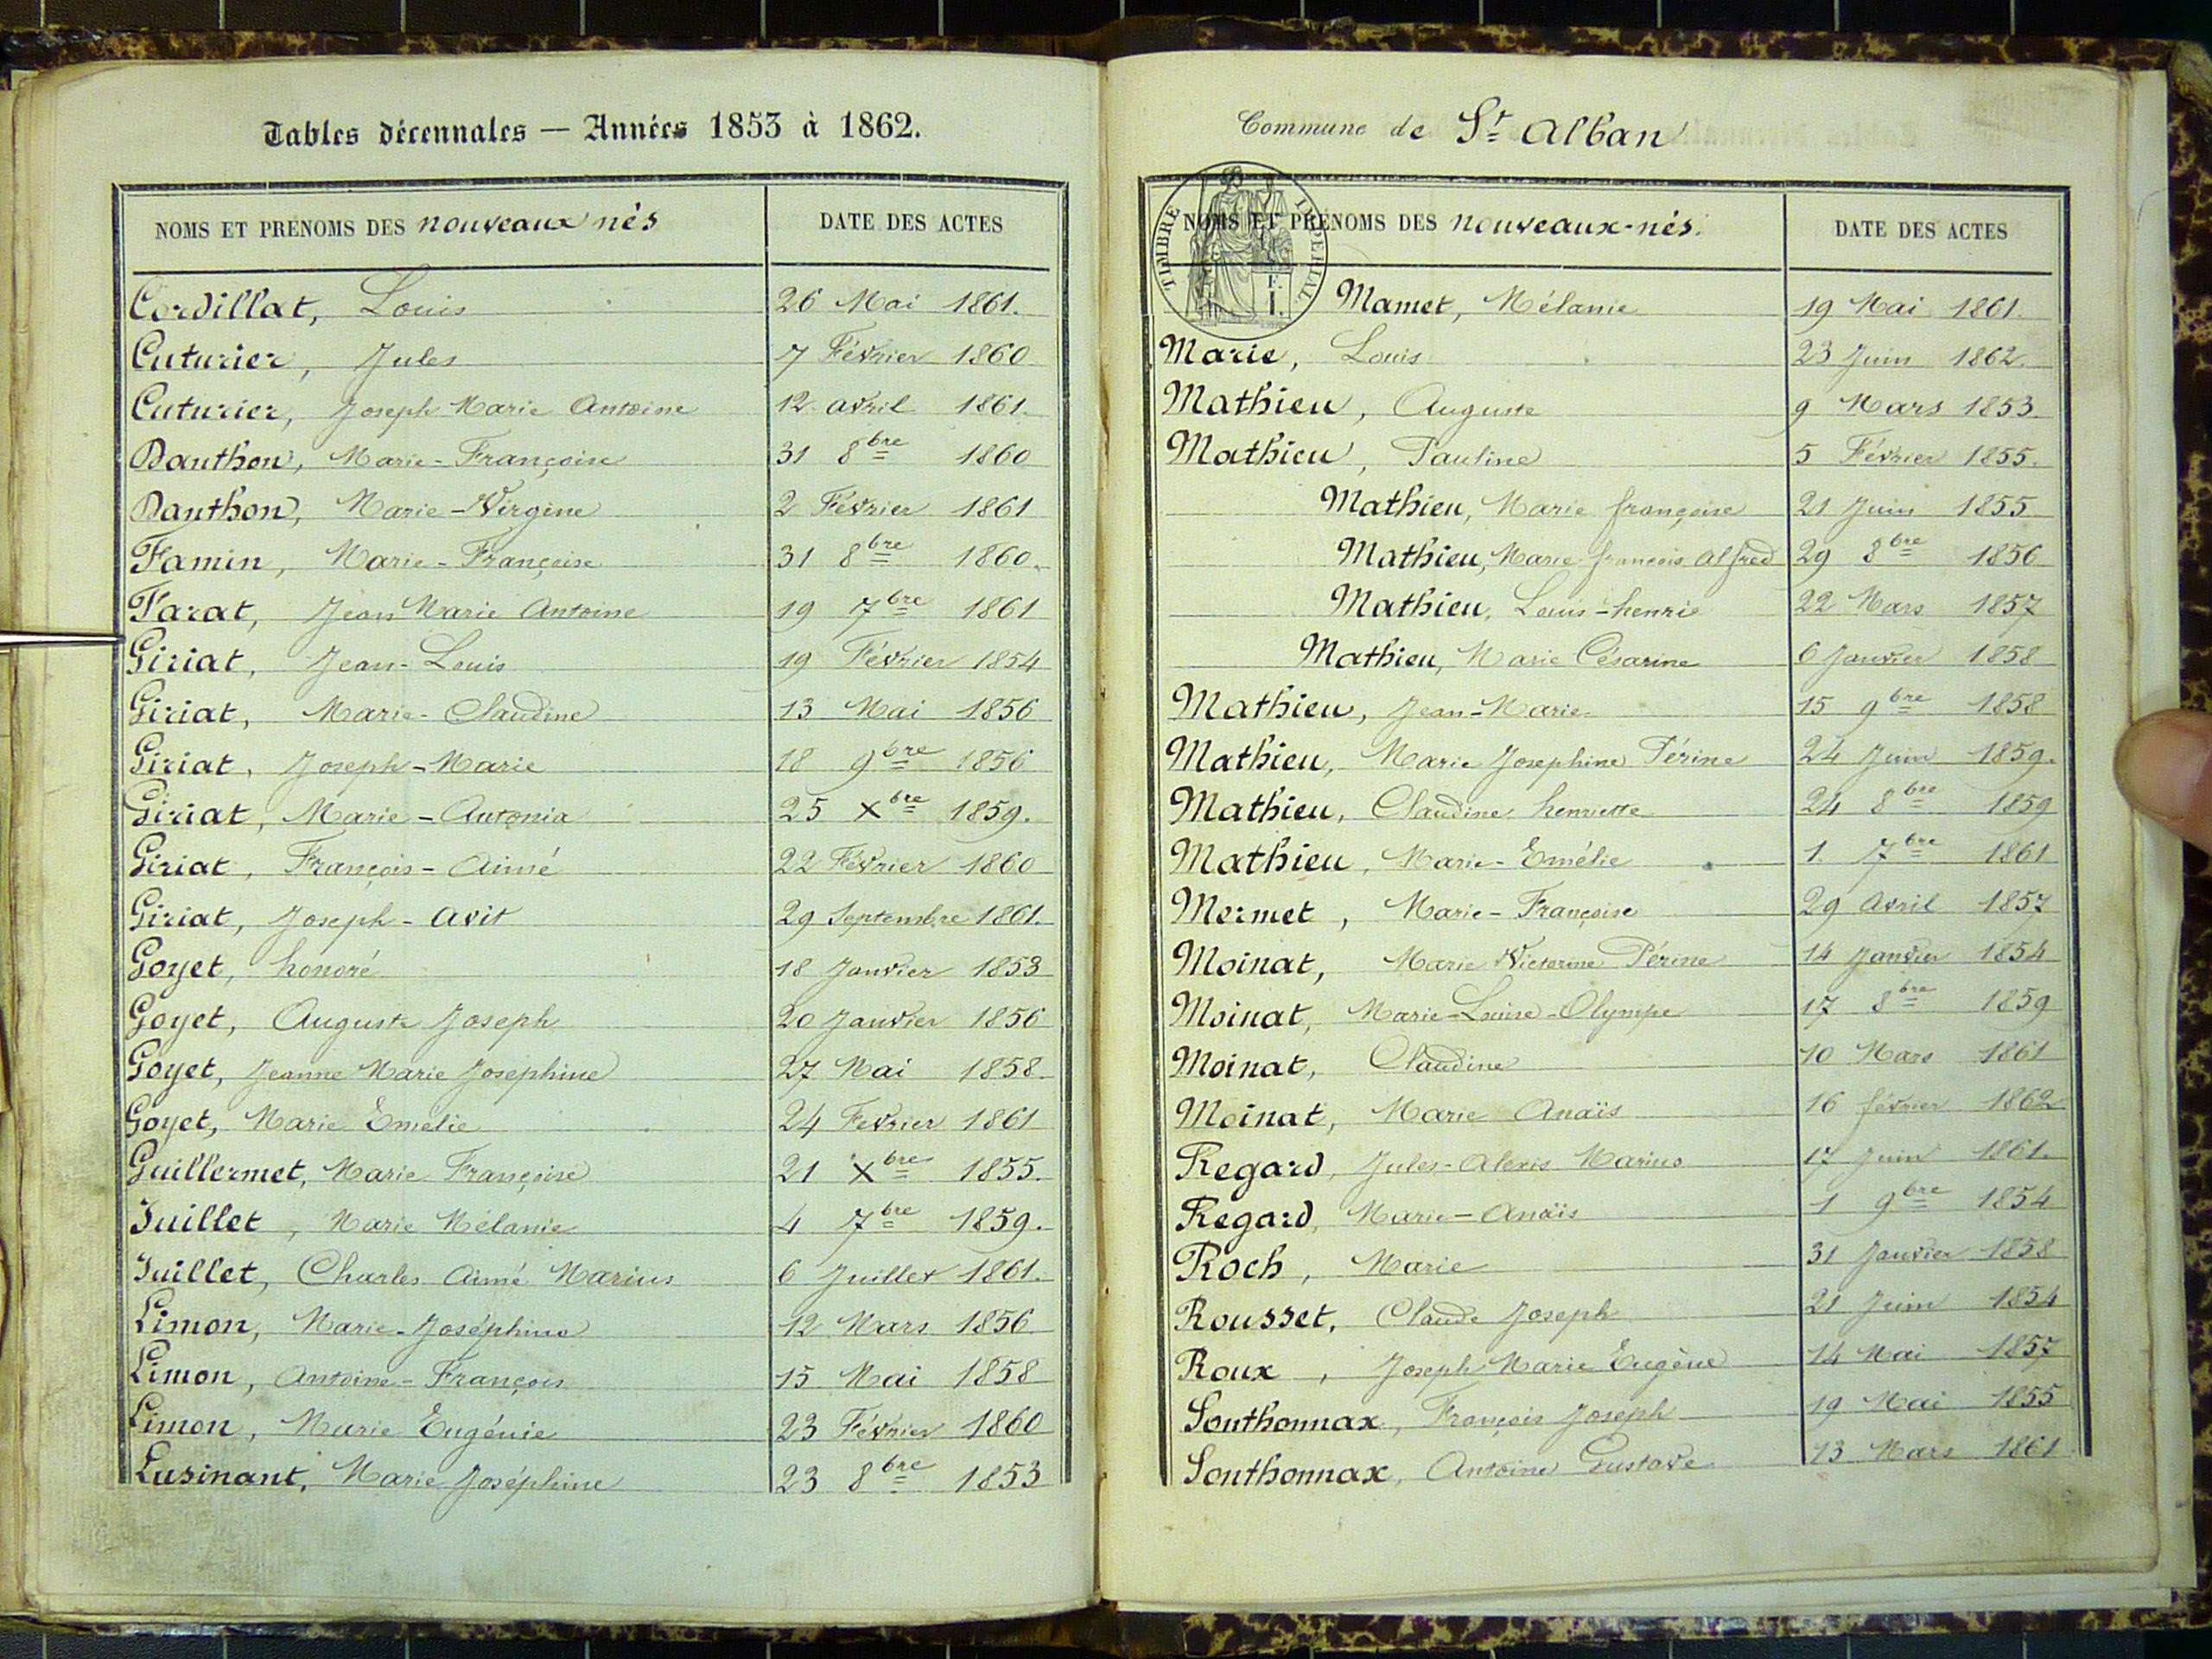 Tables décennales — Années 1853 à 1862.
NOMS ET PRÉNOMS DES nouveaux nés DATE DES ACTES
Cordillat, Louis 26 Mai 1861.
Cuturier, Jules 7 Février 1860
Cuturier, Joseph Marie Antoine 12 avril 1861.
Danthon, Marie-Françoise 31 8bre 1860
Danthon, Marie-Virginie 2 Février 1861
Famin, Marie-Françoise 31 8bre 1860.
Farat, Jean Marie Antoine 19 7bre 1861
Giriat, Jean-Louis 19 Février 1854
Giriat, Marie-Claudine 13 Mai 1856
Giriat, Joseph-Marie 18 9bre 1856
Giriat, Marie-Antonia 25 Xbre 1859.
Giriat, François-Aimé 22 Février 1860
Giriat, Joseph-Avit 29 Septembre 1861.
Goyet, honoré 18 Janvier 1853
Goyet, Auguste Joseph 20 Janvier 1856
Goyet, Jeanne Marie Josephine 27 Mai 1858.
Goyet, Marie Emélie 24 Fevrier 1861
Guillermet, Marie Françoise 21 Xbre 1855.
Juillet, Marie Mélanie 4 7bre 1859.
Juillet, Charles Aimé Marius 6 Juillet 1861.
Limon, Marie-Joséphine 12 Mars 1856
Limon, Antoine-François 15 Mai 1858
Limon, Marie Eugénie 23 Février 1860
Lusinant, Marie Joséphine 23 8bre 1853
Commune de St Alban
TIMBRE IMPERIAL
NOMS ET PRÉNOMS DES nouveaux-nés. DATE DES ACTES
Mamet, Mélanie 19 Mai 1861.
Marie, Louis 23 Juin 1862.
Mathieu, Auguste 9 Mars 1853.
Mathieu, Pauline 5 Février 1855.
Mathieu, Marie françoise 21 Juin 1855
Mathieu, Marie françois Alfred 29 8bre 1856
Mathieu, Louis-henri 22 Mars 1857
Mathieu, Marie Césarine 6 Janvier 1858
Mathieu, Jean-Marie 15 9bre 1858
Mathieu, Marie Josephine Périne 24 Juin 1859.
Mathieu, Claudine henriette 24 8bre 1859
Mathieu, Marie-Emélie 1. 7bre 1861
Mermet, Marie-Françoise 29 Avril 1857
Moinat, Marie Victorine Périne 14 Janvier 1854
Moinat, Marie-Louise-Olympe 17 8bre 1859
Moinat, Claudine 10 Mars 1861
Moinat, Marie Anaïs 16 février 1862
Regard, Jules-Alexis Marius 17 Juin 1861.
Regard, Marie-Anaïs 1 9bre 1854
Roch, Marie 31 Janvier 1858
Rousset, Claude Joseph 21 Juin 1854
Roux, Joseph Marie Eugène 14 Mai 1857
Southonnax, François Joseph 19 Mai 1855
Southonnax, Antoine Gustave 13 Mars 1861